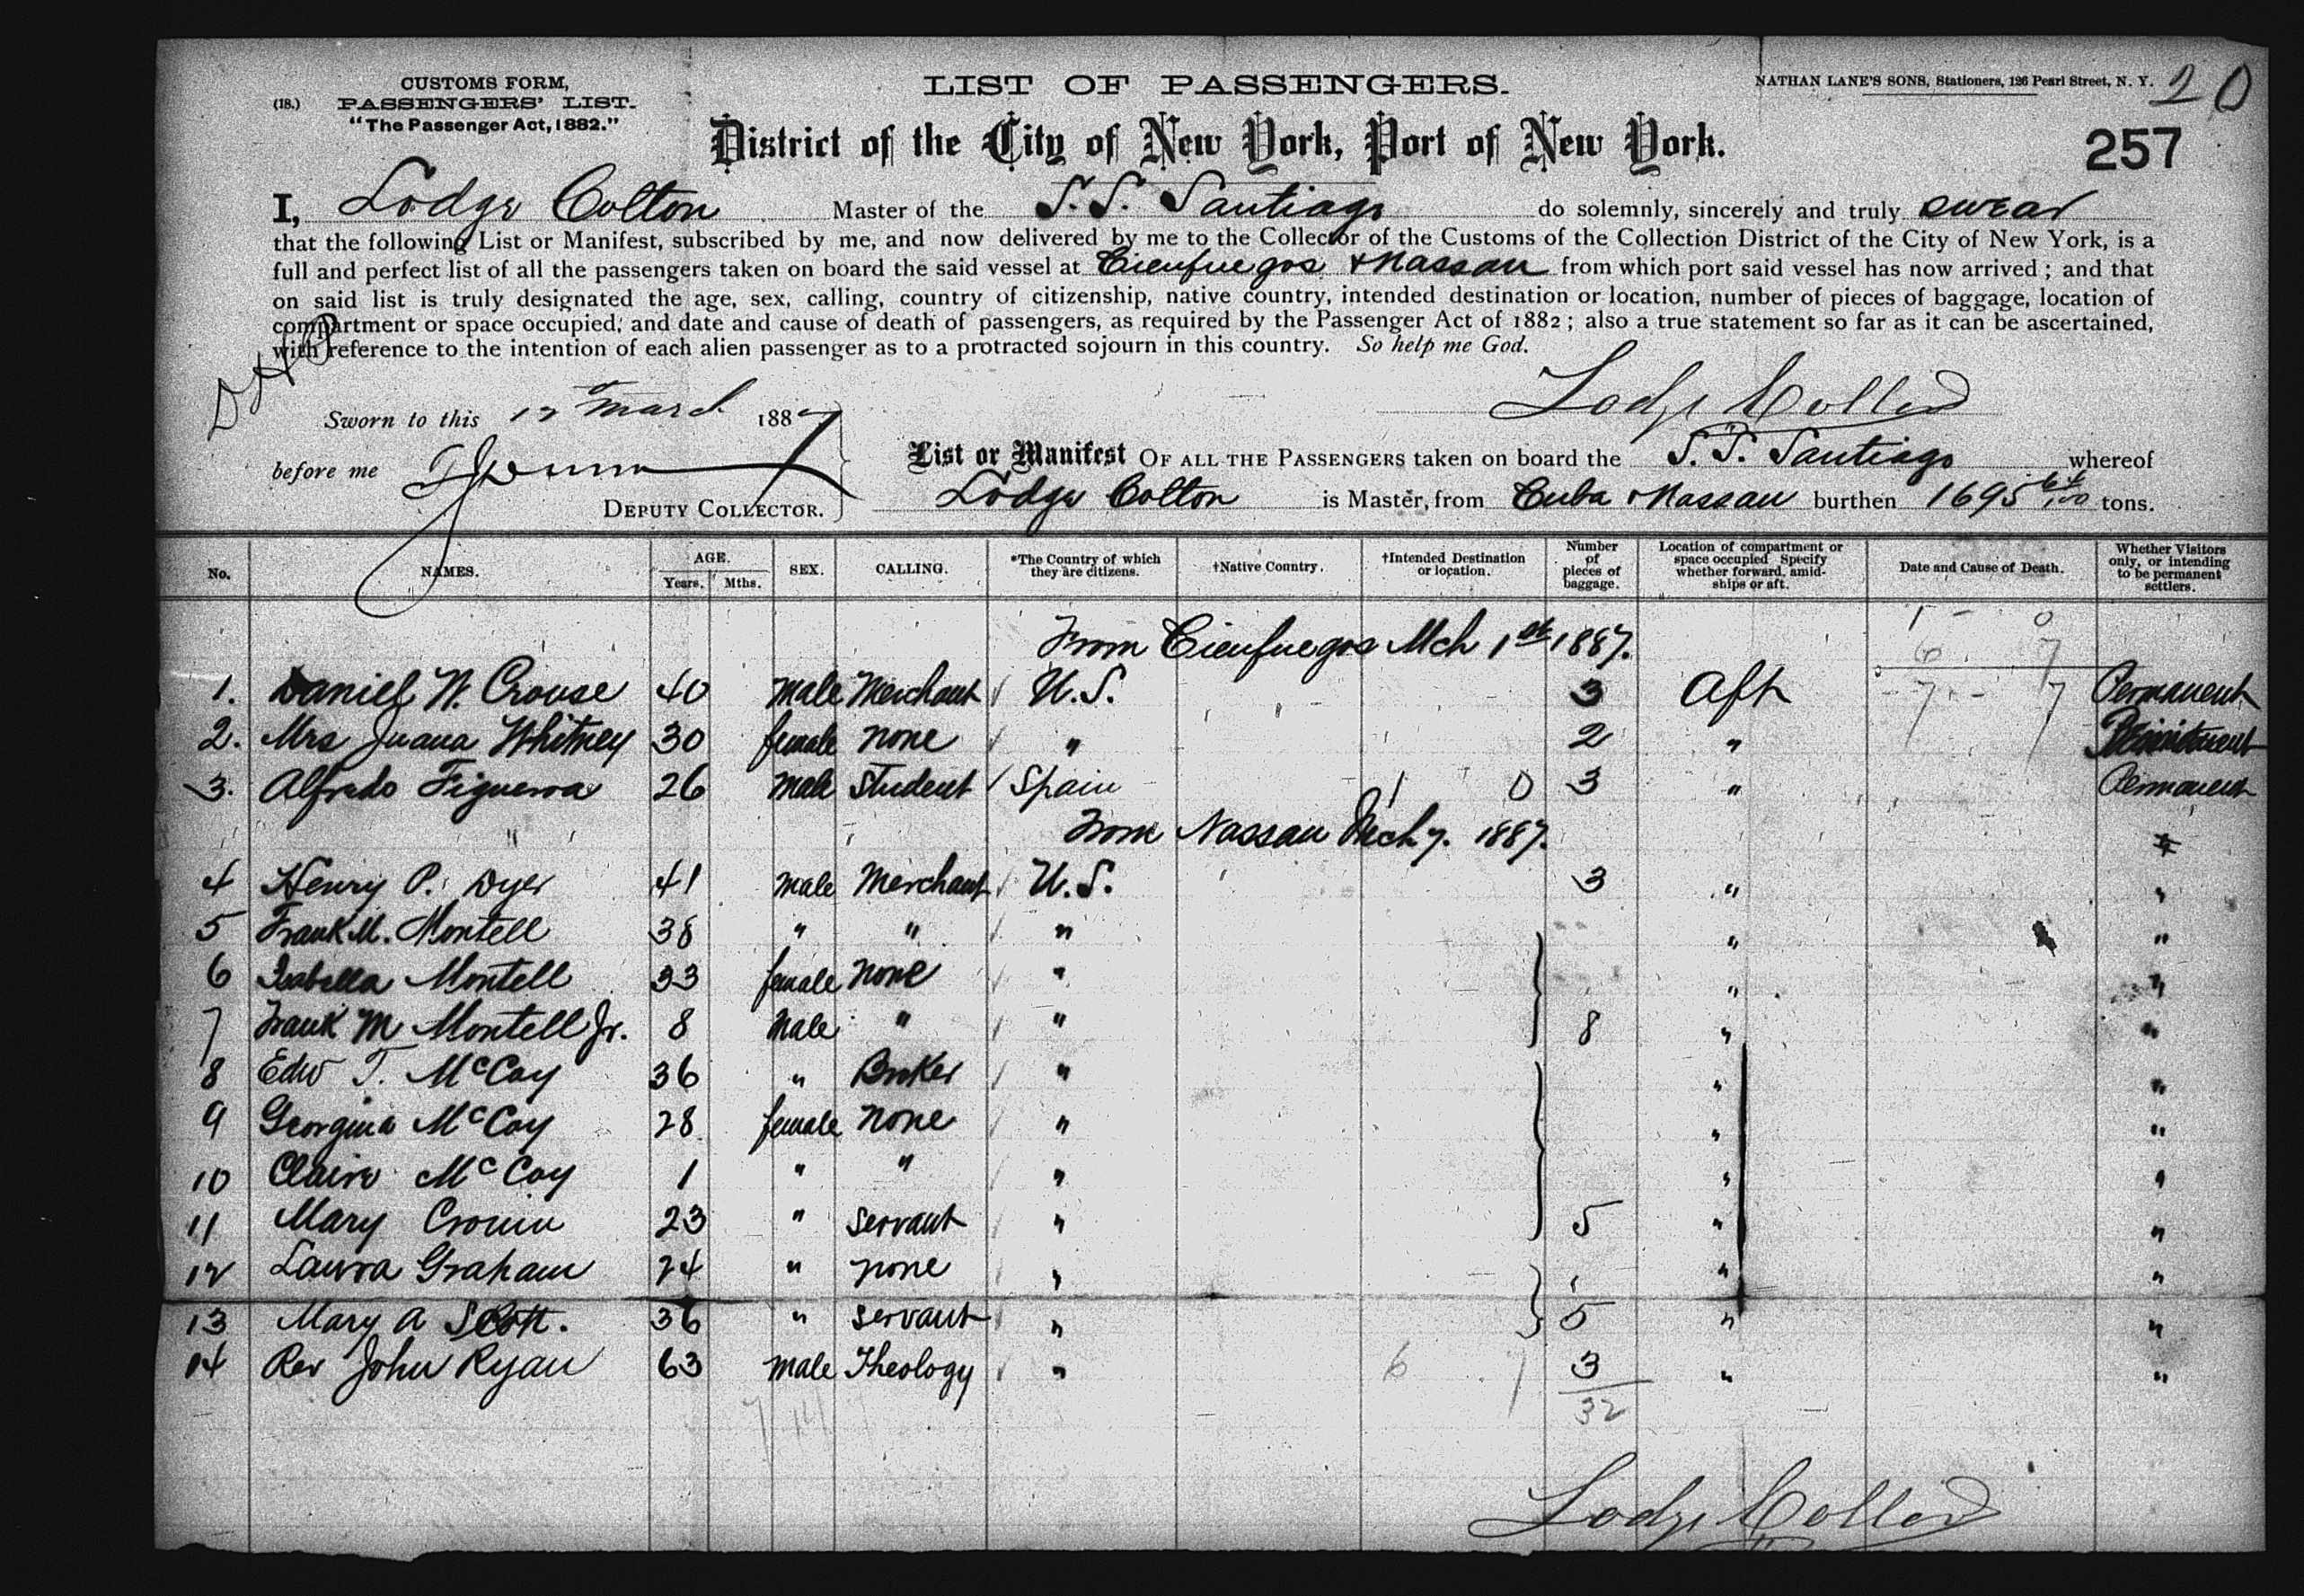 CUSTOMS FORM,
(18.) PASSENGERS' LIST.
"The Passenger Act, 1882."
LIST OF PASSENGERS.
NATHAN LANE'S SONS, Stationers, 126 Pearl Street, N. Y.
20
District of the City of New York, Port of New York.
257
I, Lodge Colton Master of the S.S. Santiago do solemnly, sincerely and truly swear
that the following List or Manifest, subscribed by me, and now delivered by me to the Collector of the Customs of the Collection District of the City of New York, is a
full and perfect list of all the passengers taken on board the said vessel at Cienfuegos & Nassau from which port said vessel has now arrived; and that
on said list is truly designated the age, sex, calling, country of citizenship, native country, intended destination or location, number of pieces of baggage, location of
compartment or space occupied, and date and cause of death of passengers, as required by the Passenger Act of 1882; also a true statement so far as it can be ascertained,
with reference to the intention of each alien passenger as to a protracted sojourn in this country. So help me God.
Lodge Colton
Sworn to this March 1887
before me
DEPUTY COLLECTOR.
List or Manifest OF ALL THE PASSENGERS taken on board the S.S. Santiago whereof
Lodge Colton is Master, from Cuba & Nassau burthen 1695 64/100 tons.
No. NAMES. AGE. Years. Mths. SEX. CALLING. *The Country of which they are citizens. †Native Country. †Intended Destination or location. Number of pieces of baggage. Location of compartment or space occupied Specify whether forward, amidships or aft. Date and Cause of Death. Whether Visitors only, or intending to be permanent settlers.
From Cienfuegos Mch 1st 1887.
1. Daniel W. Crouse 40 male Merchant U.S. 3 Aft Permanent
2. Mrs Juana Whitney 30 female none " 2 "
3. Alfredo Figueroa 26 male student Spain 1 0 3 " Permanent
From Nassau Mch 7. 1887.
4 Henry P. Dyer 41 male Merchant U.S. 3 " "
5 Frank M. Montell 38 " " " " "
6 Isabella Montell 33 female none " " "
7 Frank M Montell Jr. 8 male " " 8 " "
8 Edw T. McCoy 36 " Broker " " "
9 Georgina McCoy 28 female none " " "
10 Claire McCoy 1 " " " " "
11 Mary Cronin 23 " servant " 5 " "
12 Laura Graham 24 " none " " "
13 Mary A Scott. 36 " servant " 5 " "
14 Rev John Ryan 63 male Theology " 6 7 3 " "
32
Lodge Colton